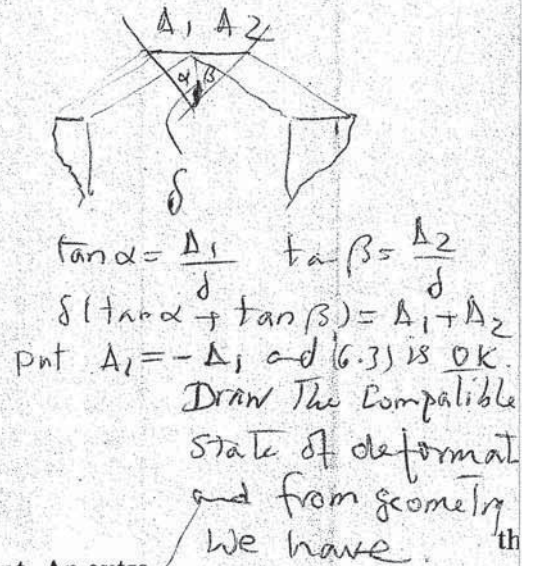 Δ₁ Δ₂
α β
δ
tan α = Δ₁/δ ta β = Δ₂/δ
δ(tan α + tan β) = Δ₁ + Δ₂
put Δ₁ = - Δ₁ and (6.3) is OK.
Draw The Compatible
State of deformat
and from geometry
We have. th